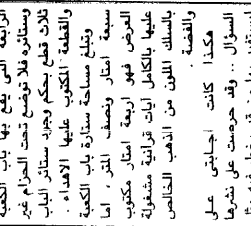 الرابعة التي يقع بها باب الكعبة
وستائره فلا توضع تحت الحزام غير
ثلاث قطع بحكم وجود ستائر الباب
والقطعة المكتوب عليها الاهداء .
وتبلغ مساحة ستارة باب الكعبة
سبعة امتار ونصف المتر ، اما
العرض فهو اربعة امتار مكتوب
عليها بالكامل آيات قرآنية مشغولة
بالسلك الملون من الذهب الخالص
والفضة .
هكذا كانت اجابتى على
السؤال .. وقد حرصت على نشرها